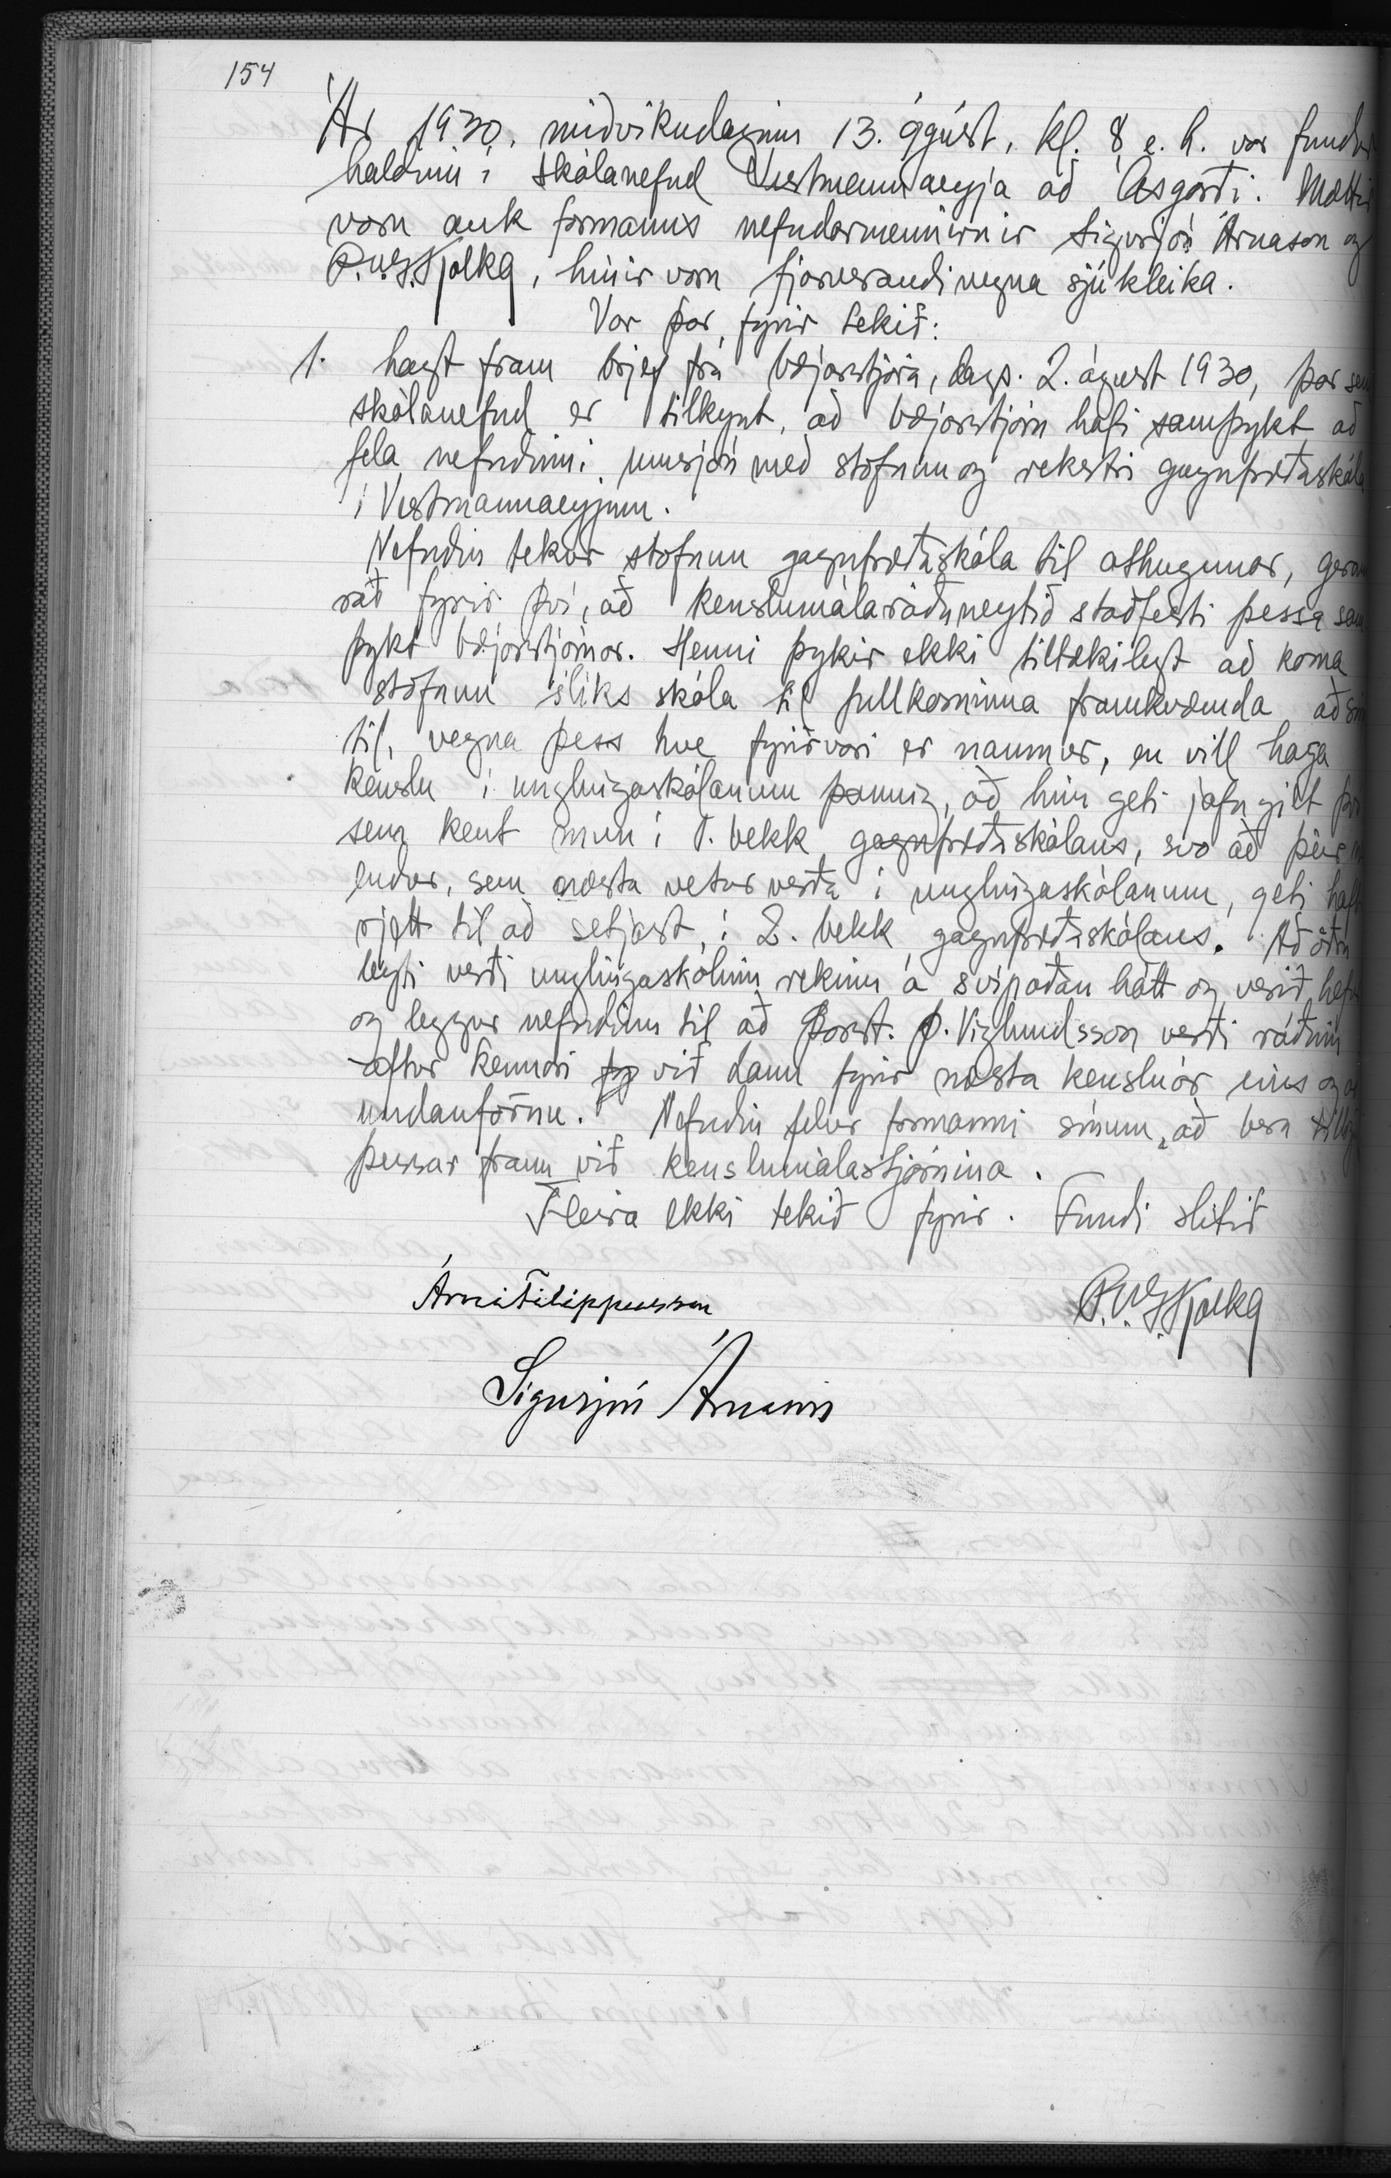 154
Ár 1930, miðvikudaginn 13. ágúst, kl. 8 e. h. var fundur
haldinn í skólanefnd Vestmannaeyja að Ásgarði. Mættir
voru auk formanns nefndarmennirnir Sigurjón Árnason og
P.V.G. Kolka, hinir voru fjarverandi vegna sjúkleika.
Var þar fyrir tekið:
1. Lagt fram brjef frá bæjarstjóra, dags. 2. ágúst 1930, þar sem
skólanefnd er tilkynt, að bæjarstjórn hafi samþykt að
fela nefndinni umsjón með stofnun og rekstri gagnfræðaskóla
í Vestmannaeyjum.
Nefndin tekur stofnun gagnfræðaskóla til athugunar, gerandi
ráð fyrir því, að kenslumálaráðuneytið staðfesti þessa sam
þykt bæjarstjórnar. Henni þykir ekki tiltækilegt að koma
stofnun slíks skóla til fullkominna framkvæmda að
til, vegna þess hve fyrirvari er naumur, en vill haga
kenslu í unglingaskólanum þannig, að hún geti jafngilt því
sem kent mun í 1. bekk gagnfræðaskólans, svo að þeir
endur, sem næsta vetur verða í unglingaskólanum, geti haft
rjett til að setjast í 2. bekk gagnfræðaskólans. Að öðru
leyti verði unglingaskólinn rekinn á svipaðan hátt og verið hefur
og leggur nefndin til að Þorst. Þ. Víglundsson verði ráðinn
áftur kennari við hann fyrir næsta kensluár eins og að
undanförnu. Nefndin felur formanni sínum að bera
þessar fram við kenslumálastjórnina.
Fleira ekki tekið fyrir. Fundi slitið
Árni Filippusson P.V.G. Kolka
Sigurjón Árnason